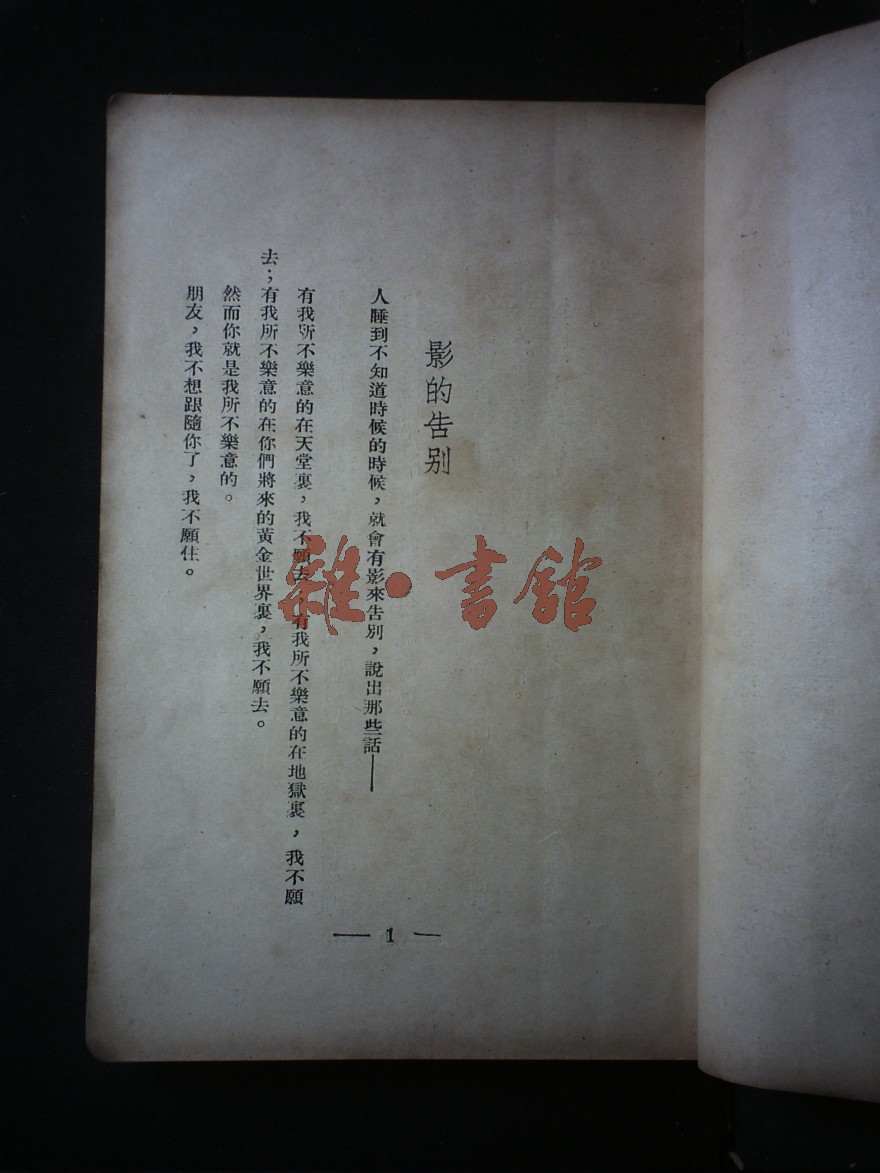 影的告别
人睡到不知道時候的時候，就會有影來告别，說出那些話——
有我所不樂意的在天堂裏，我不願去；有我所不樂意的在地獄裏，我不願
去；有我所不樂意的在你們將來的黃金世界裏，我不願去。
然而你就是我所不樂意的。
朋友，我不想跟隨你了，我不願住。
— 1 —
雜·書館